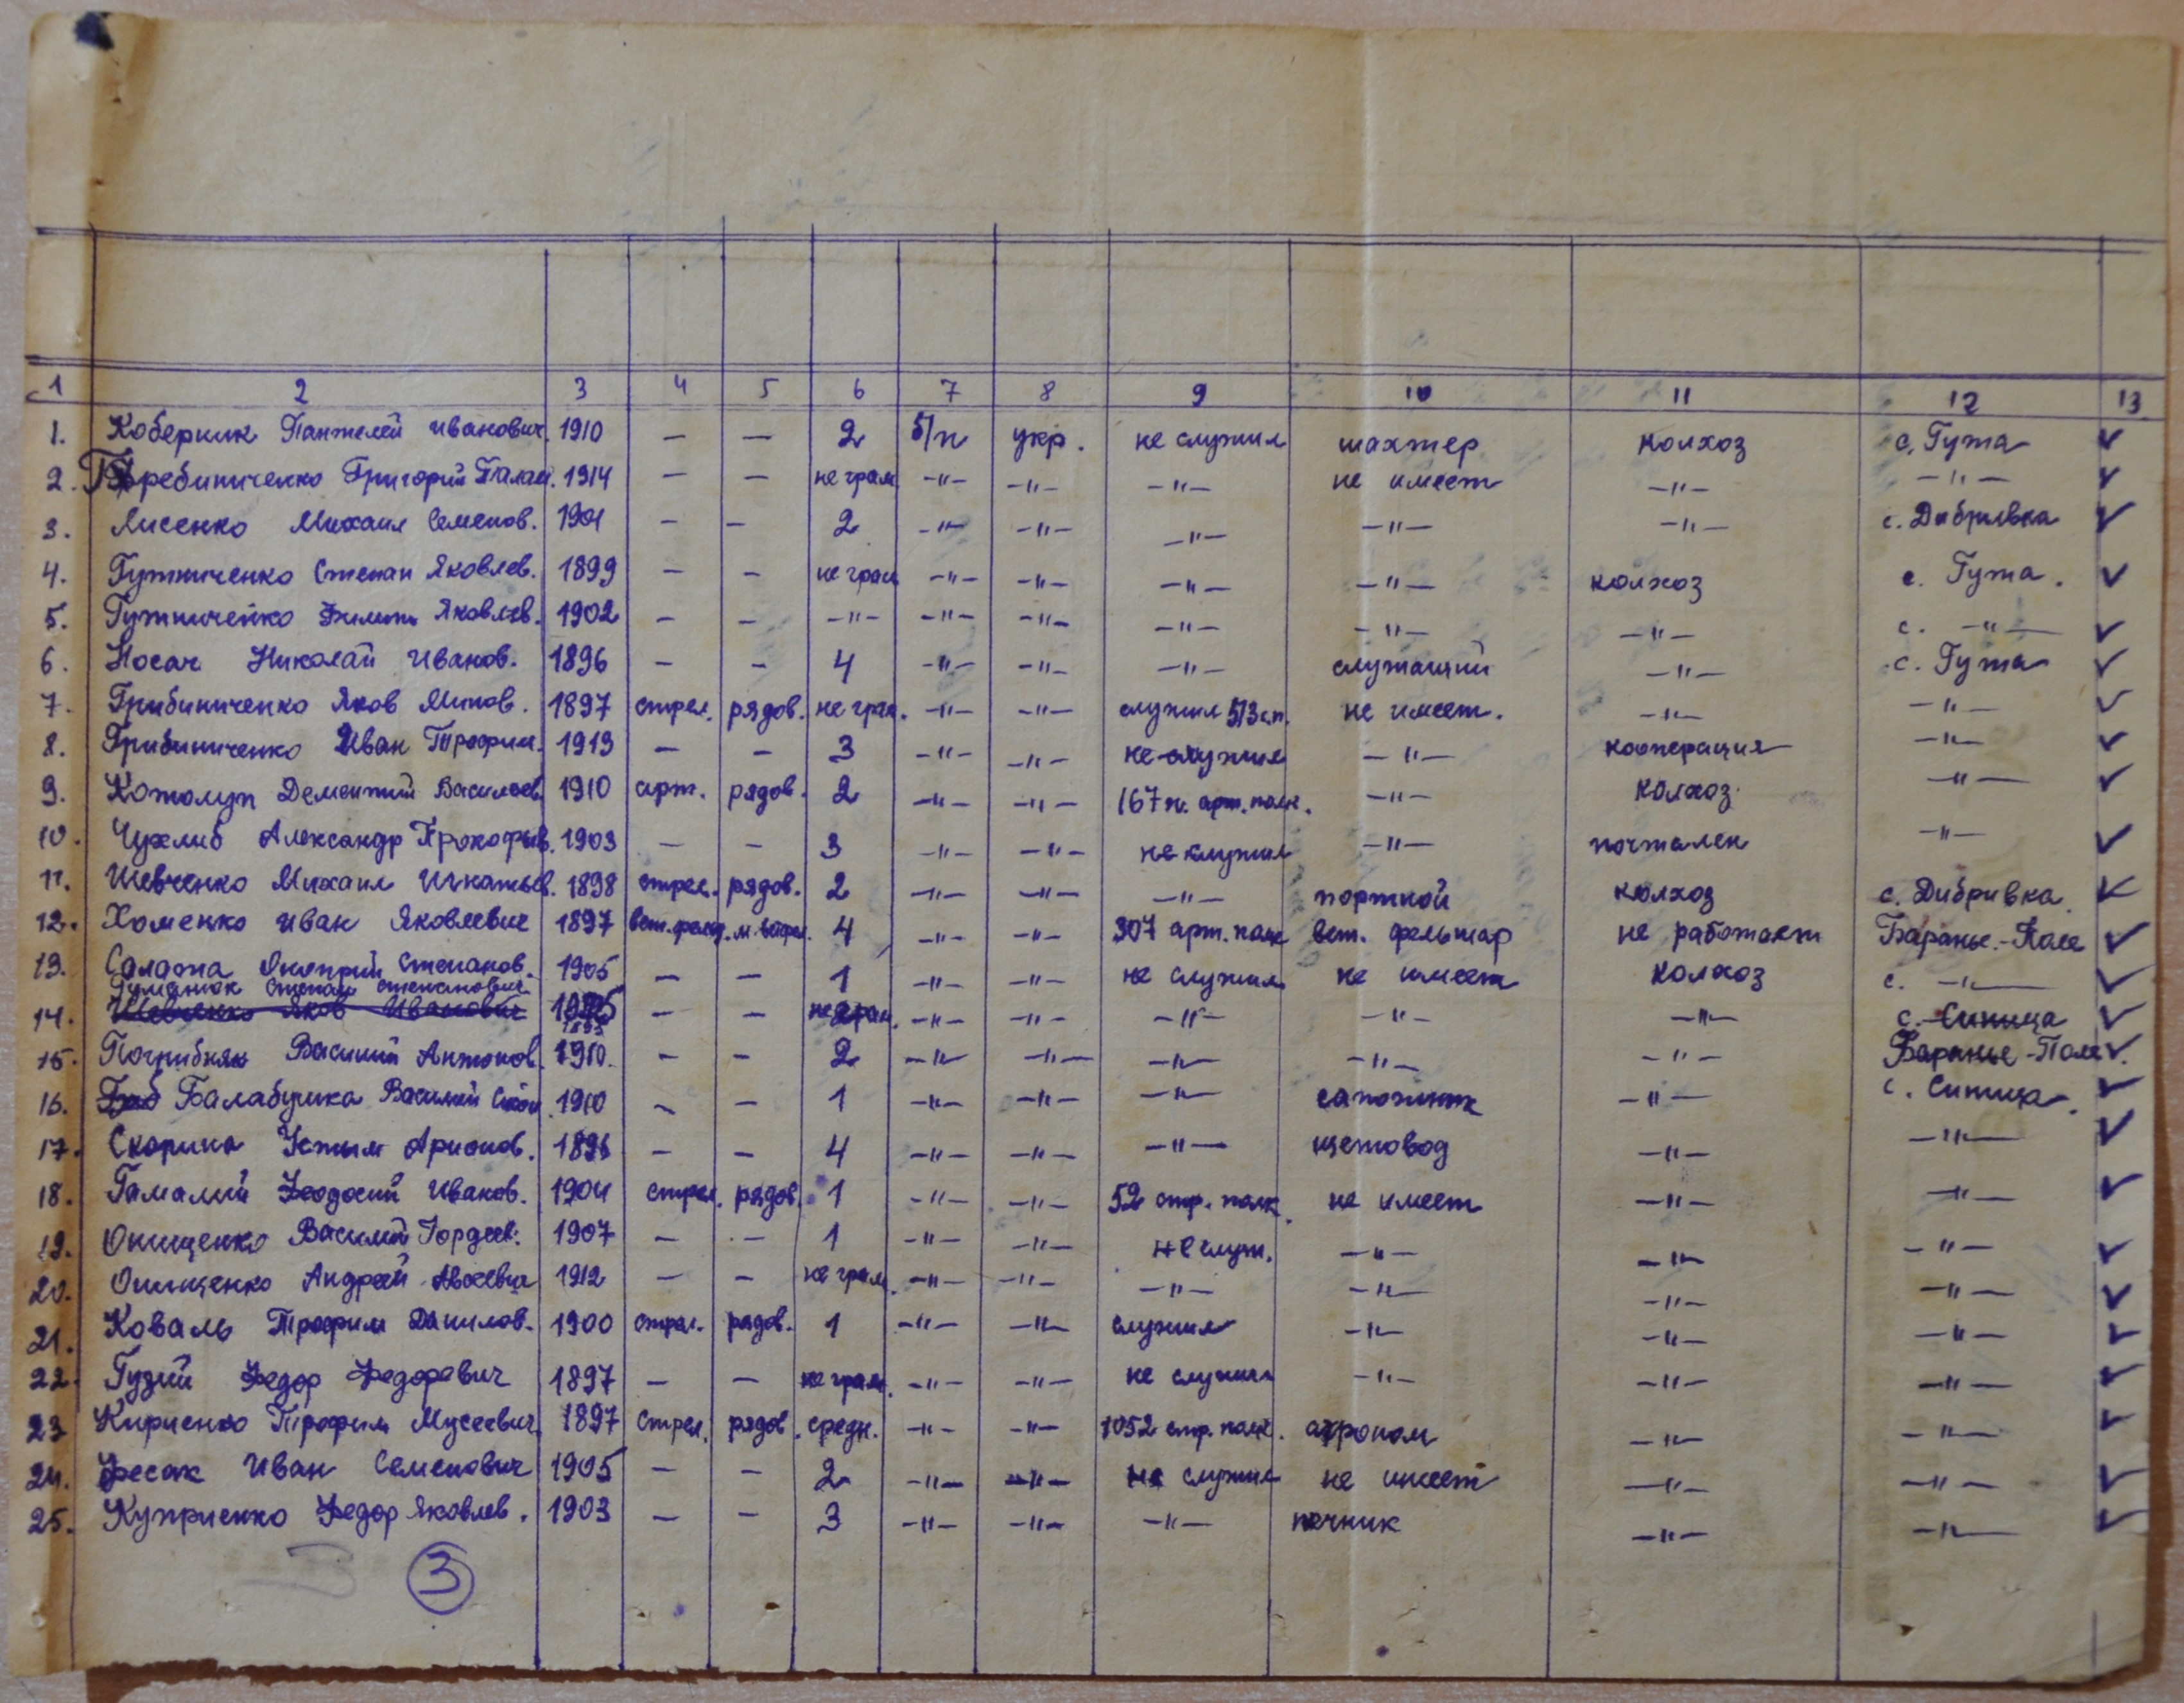 1 2 3 4 5 6 7 8 9 10 11 12 13
1. Коберник Пантелей Иванович. 1910 — — 2 б/п укр. не служил шахтер колхоз с. Гута ✓
2. Гребиниченко Григорий Палам. 1914 — — не грам. -"- -"- -"- не имеет -"- -"- ✓
3. Лисенко Михаил Семенов. 1901 — — 2 -"- -"- -"- -"- -"- с. Дибривка ✓
4. Гутниченко Степан Яковлев. 1899 — — не грам -"- -"- -"- -"- колхоз с. Гута. ✓
5. Гутниченко Филипп Яковлев. 1902 — — -"- -"- -"- -"- -"- -"- с. -"- ✓
6. Носач Николай Иванов. 1896 — — 4 -"- -"- -"- служащий -"- с. Гута ✓
7. Грибиниченко Яков Минов. 1897 стрел. рядов. не грам. -"- -"- служил 513 с.п. не имеет. -"- -"- ✓
8. Грибиниченко Иван Трофим. 1913 — — 3 -"- -"- не служил -"- кооперация -"- ✓
9. Котолуп Дементий Васильев. 1910 арт. рядов. 2 -"- -"- 167 п. арт. полк. -"- колхоз. -"- ✓
10. Чухлиб Александр Прокофьев. 1903 — — 3 -"- -"- не служил -"- почтален -"- ✓
11. Шевченко Михаил Игнатьев. 1898 стрел. рядов. 2 -"- -"- -"- портной колхоз с. Дибривка. ✓
12. Хоменко Иван Яковлевич 1897 вет. фельд. м. ветфел. 4 -"- -"- 307 арт. полк вет. фельшар не работает Баранье-Поле ✓
13. Салата Оноприй Степанов. 1905 — — 1 -"- -"- не служил не имеет колхоз с. -"- ✓
Гуманюк Степан Степанович
14. Шевченко Яков Иванович — — не грам. -"- -"- -"- -"- -"- с. Синица ✓
15. Погрибняк Василий Антонов. 1910. — — 2 -"- -"- -"- -"- -"- Баранье-Поле ✓
16. Балабушка Василий 1910 — — 1 -"- -"- -"- сапожник -"- с. Синица. ✓
17. Скорина Устым Арионов. 1896 — — 4 -"- -"- -"- щетовод -"- -"- ✓
18. Гамалий Феодосий Иванов. 1904 стрел. рядов. 1 -"- -"- 52 стр. полк. не имеет -"- -"- ✓
19. Онищенко Василий Гордеев. 1907 — — 1 -"- -"- не служ. -"- -"- -"- ✓
20. Онищенко Андрей Авсеевич 1912 — — не грам. -"- -"- -"- -"- -"- -"- ✓
21. Коваль Трофим Данилов. 1900 стрел. рядов. 1 -"- -"- служил -"- -"- -"- ✓
22. Гудий Федор Федоревич 1897 — — не грам. -"- -"- не служил -"- -"- -"- ✓
23 Кириенко Трофим Мусеевич. 1897 Стрел. рядов. средн. -"- -"- 1052 стр. полк. агроном -"- -"- ✓
24. Фесак Иван Семенович 1905 — — 2 -"- -"- не служил не имеет -"- -"- ✓
25. Куприенко Федор Яковлев. 1903 — — 3 -"- -"- -"- печник -"- -"- ✓
3